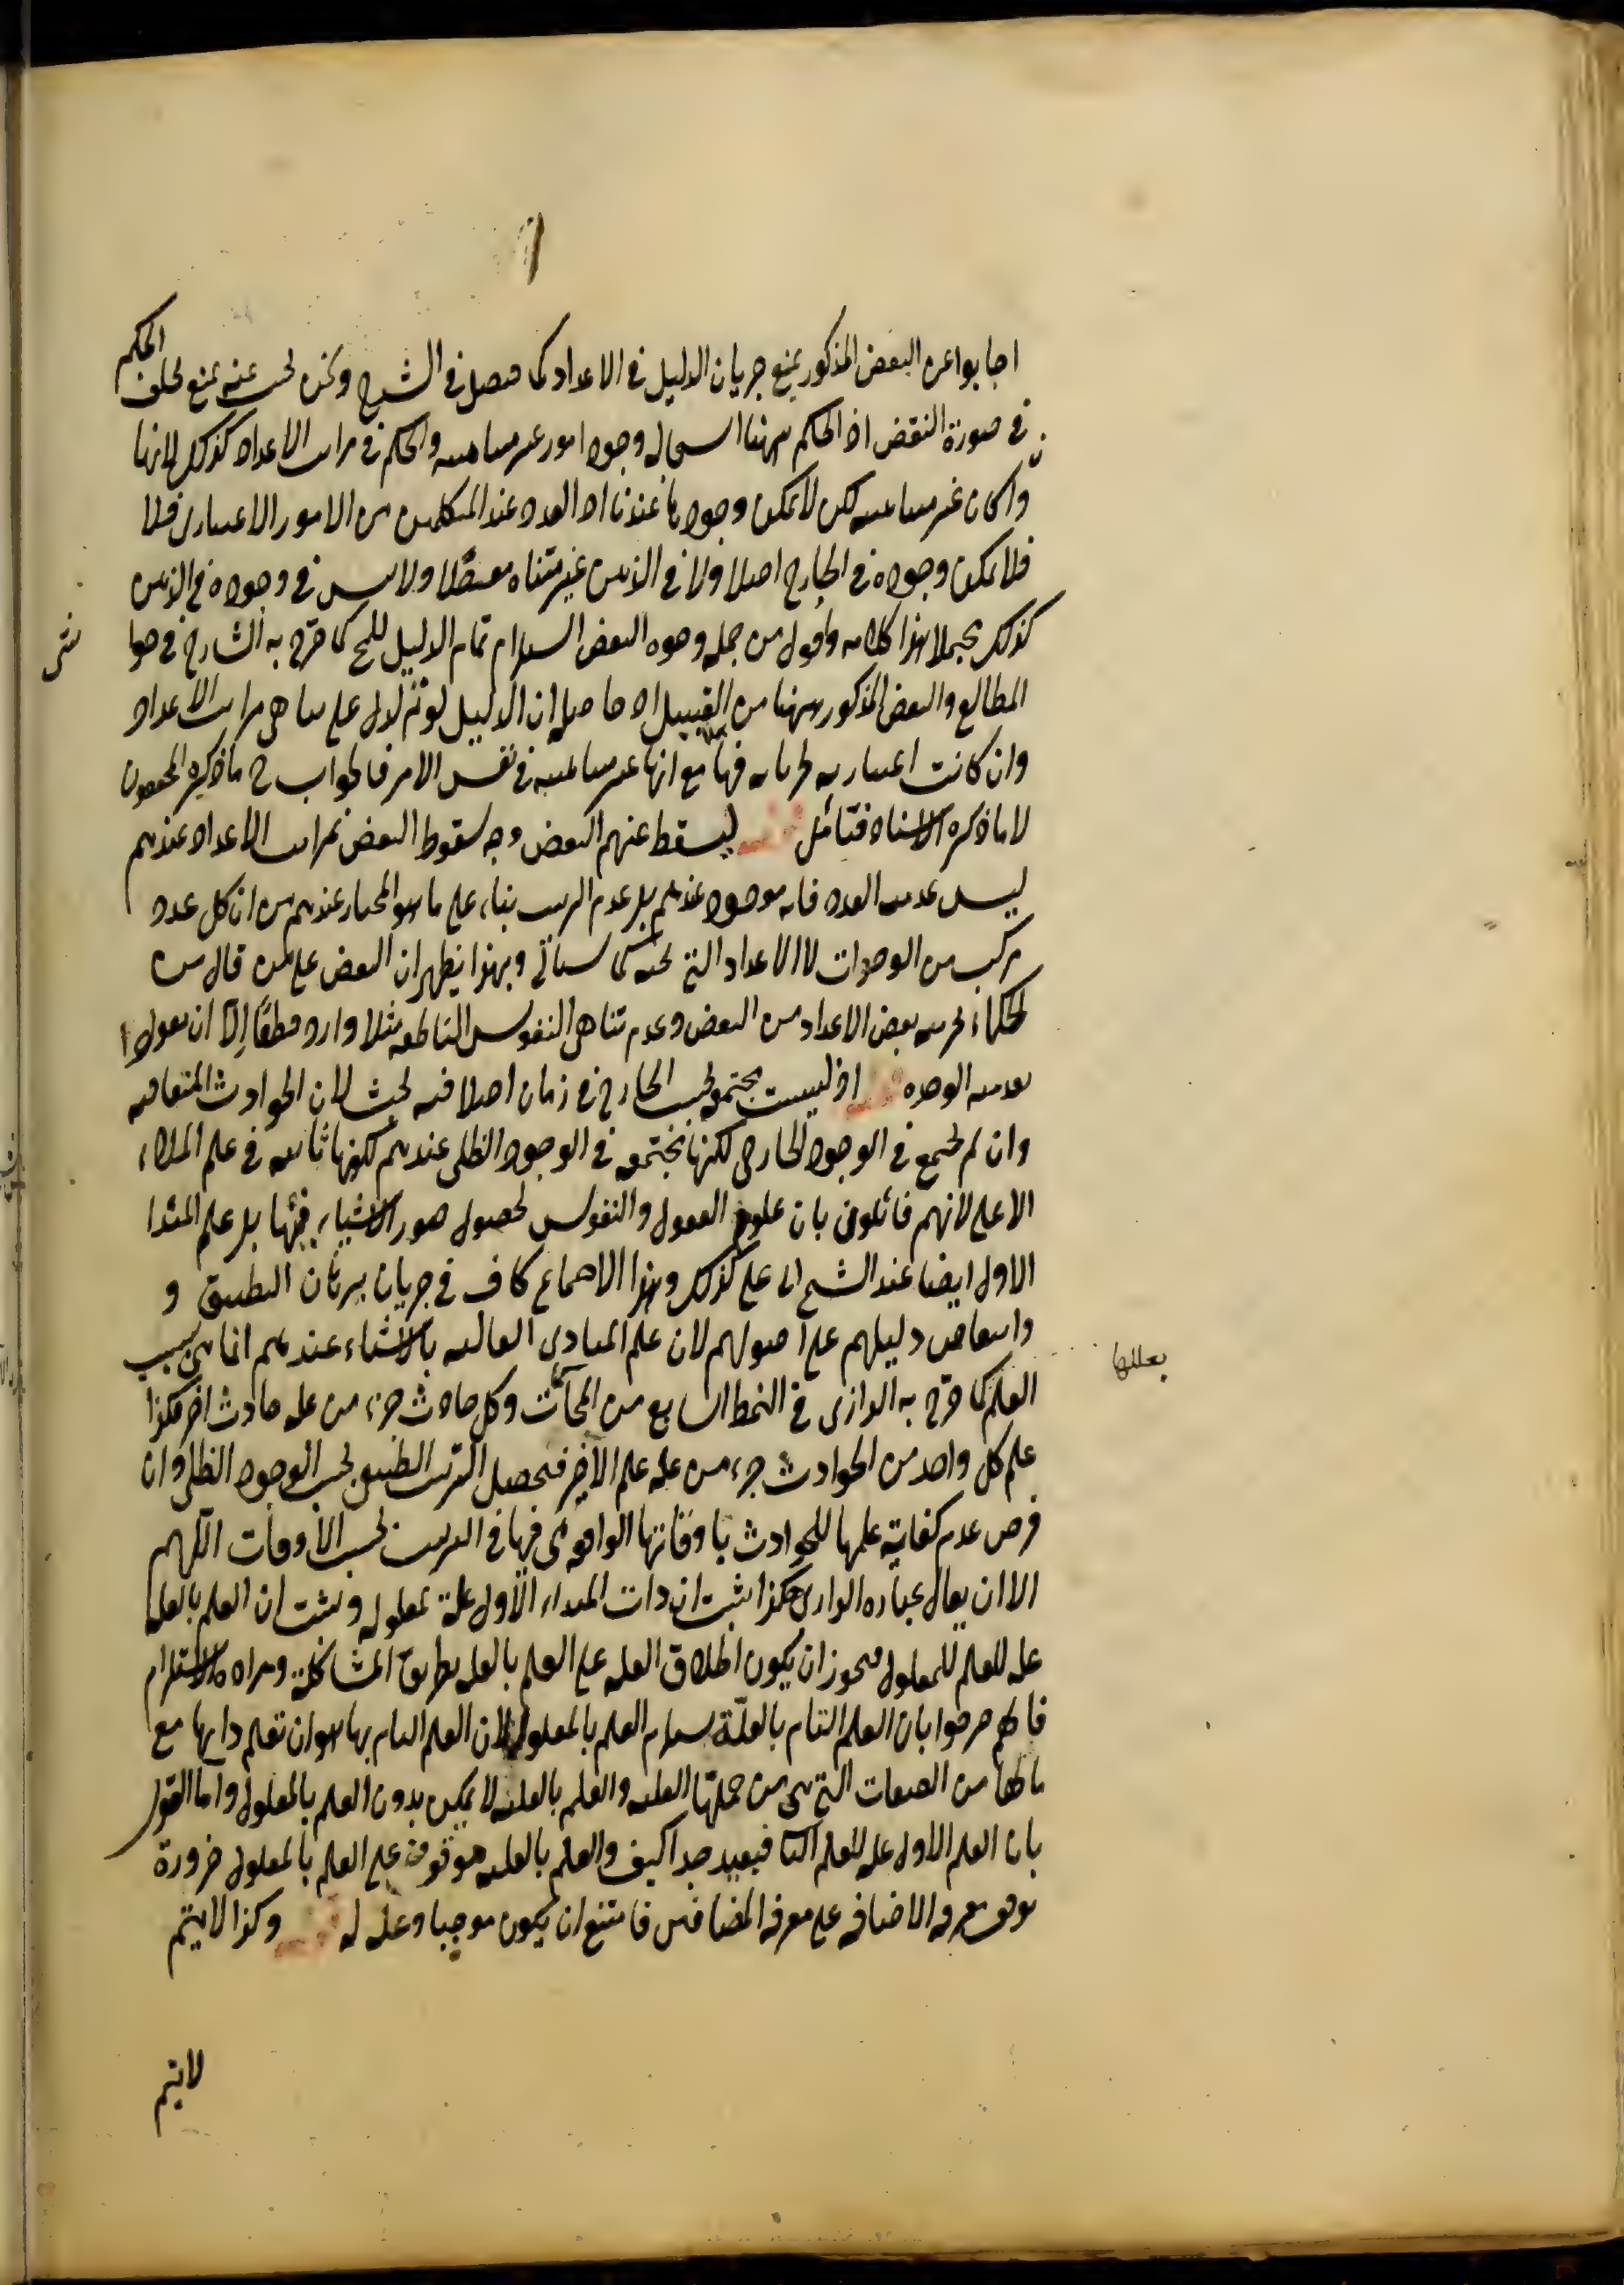 اجابوا عن البعض المذكور بمنع جريان الدليل في الاعداد كما فصل في الشرح ونحن نجيب عنه بمنع تخلف الحكم
في صورة النقض اذ الحكم ههنا استحالة وجود امور غير متناهيه والحكم في مراتب الاعداد كذلك لانها
وان كان غير متناهيه لكن لا يمكن وجودها عندنا اذ العدد عند المتكلمين من الامور الاعتبارى فلا
فلا يمكن وجوده في الخارج اصلا ولا في الذهن غير متناه مفصّلا ولا يلتبس في وجوده في الذهن
كذلك مجملا هذا كلامه واقول من جمله وجوه النقض استلزام تمام الدليل للمح كما صرّح به الشارح في حوا
شى
المطالع والنقض المذكور ههنا من القبيل اذ حاصله ان الدليل لو تم لدل على تناهى مراتب الاعداد
وان كانت اعتباريه لجريانه فيها مع انها غير متناهيه في نفس الامر فالجواب ح ما ذكره المحققون
لا ما ذكره الاستاد فتأمل ليسقط عنهم النقض وجه سقوط النقض بمراتب الاعداد عندهم
ليس عدميه العدد فانه موجود عندهم بل عدم الترتب بناء على ما هو المختار عندهم من ان كل عدد
مركب من الوحدات لا الاعداد التى تحته كما سيأتى وبهذا يظهر ان النقض على من قال من
الحكماء بتركيب بعض الاعداد من البعض وعدم تناهى النفوس الناطقه مثلا وارد قطعًا إلّا ان يقولوا
بعدميه الوحده اذ ليست مجتمعة بحسب الخارج في زمان اصلا فيه بحث لان الحوادث المتعاقبه
وان لم تجتمع في الوجود الخارجى لكنها مجتمعه في الوجود الظلى عندهم لكونها ثابته في علم الملاء
الاعلى لانهم قائلون بان علوم العقول والنفوس بحصول صور الاشياء فيها بل علم المبدا
الاول ايضا عند الشيخ ابى على كذلك وهذا الاجتماع كاف في جريان برهان التطبيق و
وانتقاض دليلهم على اصولهم لان علم المبادى العاليه بالاشياء عندهم انما هى بسبب
بعللها
العلم كما صرّح به الرازى في النمط السابع من المحاكمات وكل حادث جزء من علة حادث اخر فكذا
علم كل واحد من الحوادث جزء من علة علم الآخر فيحصل الترتب الطبيعى بحسب الوجود الظلى وان
فرض عدم كفاية علمها للحوادث باوقاتها الواقعة هى فيها في الترتب بحسب الأوقات اللهم
الا ان يقال عباره الرازى هكذا ثبت ان ذات المبداء الأول علة لمعلوله وثبت ان العلم بالعله
عله للعلم للمعلول فيجوز ان يكون اطلاق العله على العلم بالعله بطريق المشاكلة ومراده الاستلزام
فانهم صرحوا بان العلم التام بالعلّة يستلزم العلم بالمعلول لان العلم التام بها هو ان تعلم ذاتها مع
مالها من الصفات التى هى من جملتها العليه والعلم بالعليه لا يمكن بدون العلم بالمعلول واما القول
بان العلم الاول عله للعلم الثانى فبعيد جدا كيف والعلم بالعليه موقوف على العلم بالمعلول ضرورة
توقف معرفه الاضافه على معرفه المضافين فامتنع ان يكون موجبا وعلة له وكذا لا يتم
لا يتم